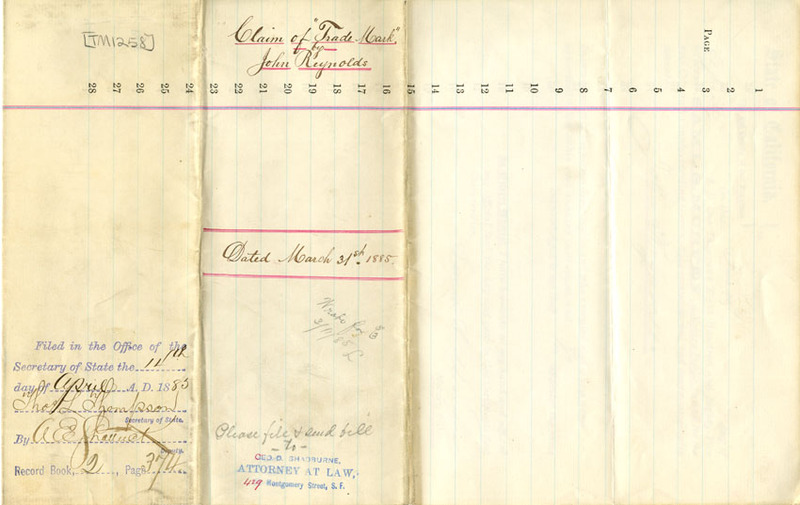 [TM1258]
Claim of "Trade Mark",
by
John Reynolds
PAGE
28 27 26 25 24 23 22 21 20 19 18 17 16 15 14 13 12 11 10 9 8 7 6 5 4 3 2 1
Dated March 31st 1885.
Wrote for $3
Filed in the Office of the
Secretary of State the 11th
day of April A. D. 1885
Thos L Thompson
Secretary of State.
By A E
Deputy.
Record Book, 2, Page 374
Please file & send bill
- To -
GEO. D. SHADBURNE,
ATTORNEY AT LAW,
419 Montgomery Street, S. F.